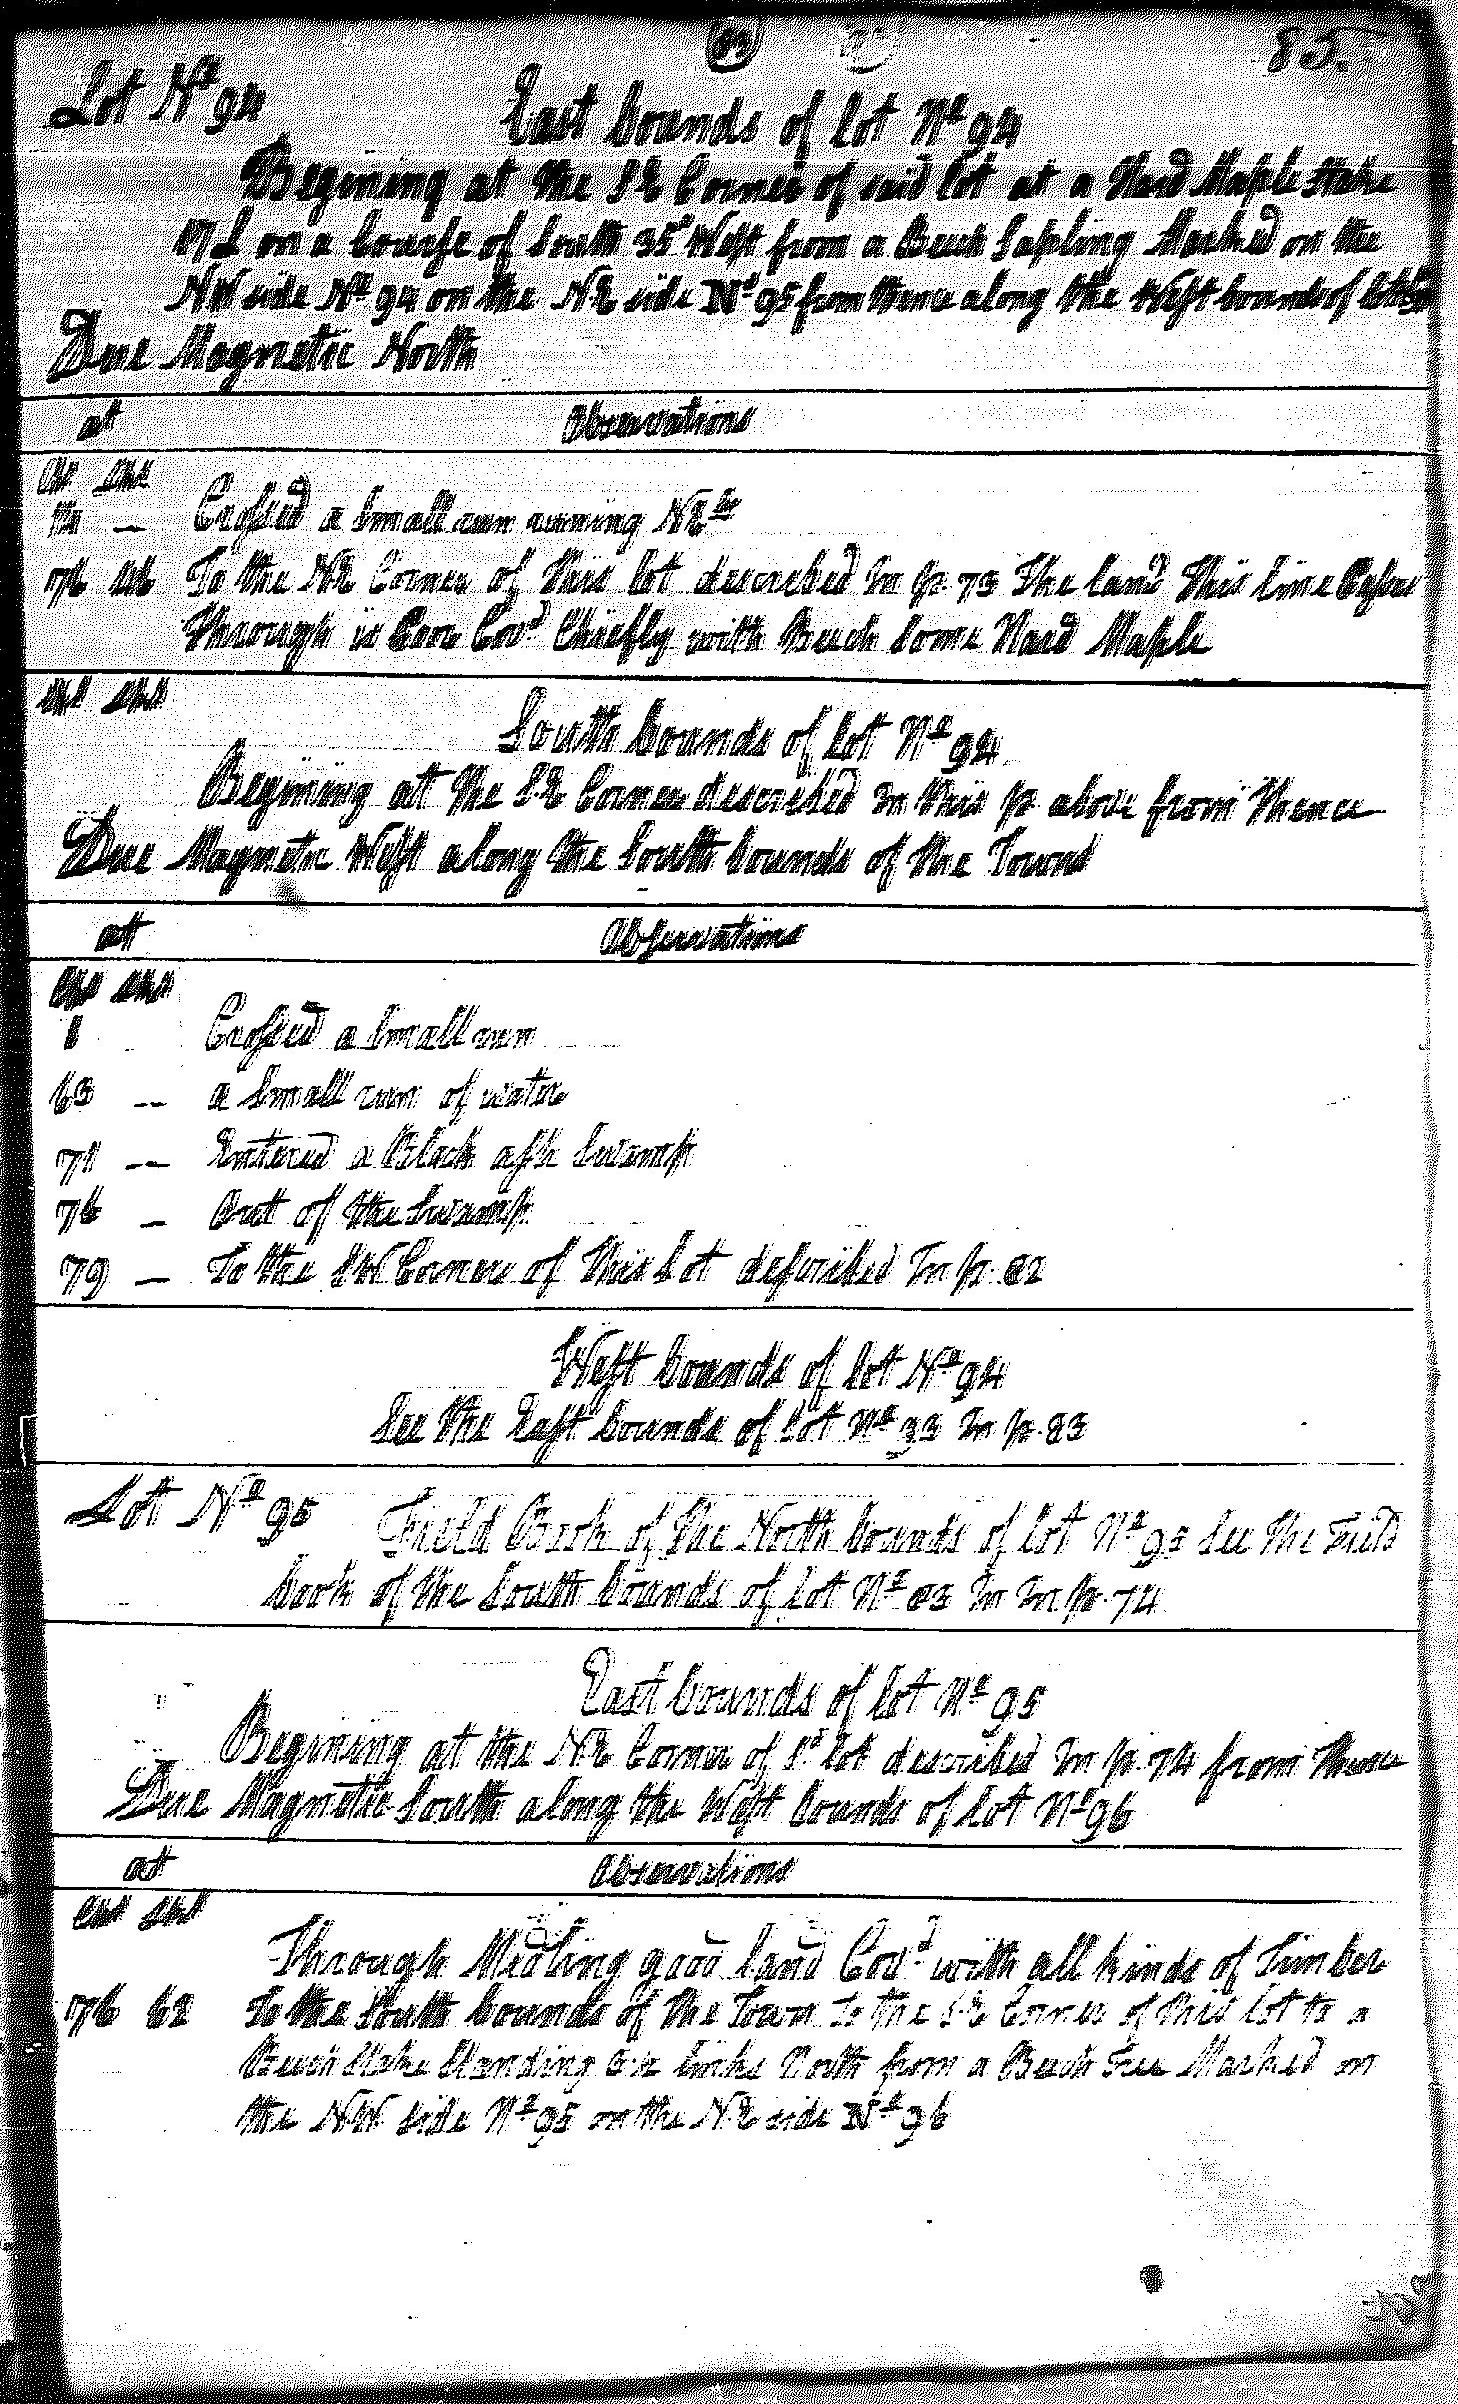 85.
Lot No 94
East bounds of lot No 94
Begining at the SE Corner of said lot at a Hard Maple stake
17 L on a Course of South 35° West from a Beech Sapling Marked on the
NW side No 94 on the NE side No 95 from thence along the West bounds of lot 95
Due Magnetic North
at Observations
Chs Lks
— Crossed a Small run runing NEly
76 To the NE Corner of this lot described In p. 73 The land this line Passes
through is Good Covd Chiefly with Beech Some Hard Maple
Chs Lks
South bounds of lot No 94
Begining at the SE Corner described in this p. above from thence
Due Magnetic West along the South bounds of the Town
at Observations
Chs Lks
1 Crossed a Small run
63 — a Small run of water
71 — Entered a Black ash Swamp
76 — Out of the Swamp
79 — To the SW Corner of this Lot described In p. 82
West bounds of lot No 94
See the East bounds of lot No 93 In p. 83
Lot No 95 Field Book of the North bounds of lot No 95 See the Field
book of the South bounds of lot No 83 In In p. 74
East bounds of lot No 95
Begining at the NE Corner of Sd lot described In p. 74 from thence
Due Magnetic South along the West bounds of Lot No 96
at Observations
Chs Lks
Through Midling good land Covd with all kinds of Timber
76 62 To the South bounds of the Town To the SE Corner of this lot to a
Beech Stake Standing Six links North from a Beech Tree Marked on
the NW side No 95 on the NE side No 96